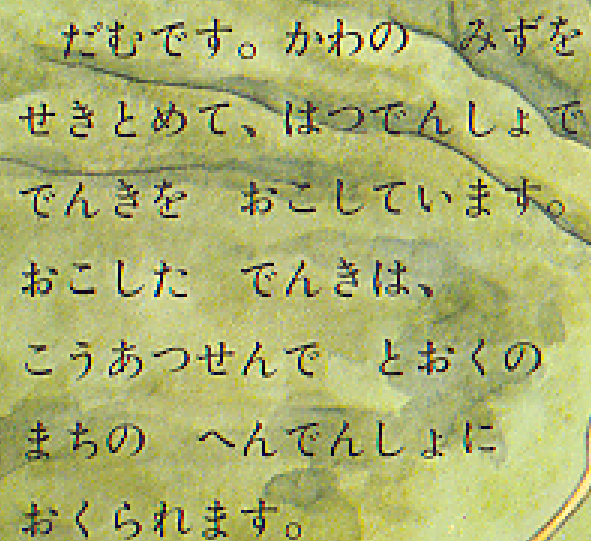 だむです。かわの　みずを
せきとめて、はつでんしょで
でんきを　おこしています。
おこした　でんきは、
こうあつせんで　とおくの
まちの　へんでんしょに
おくられます。